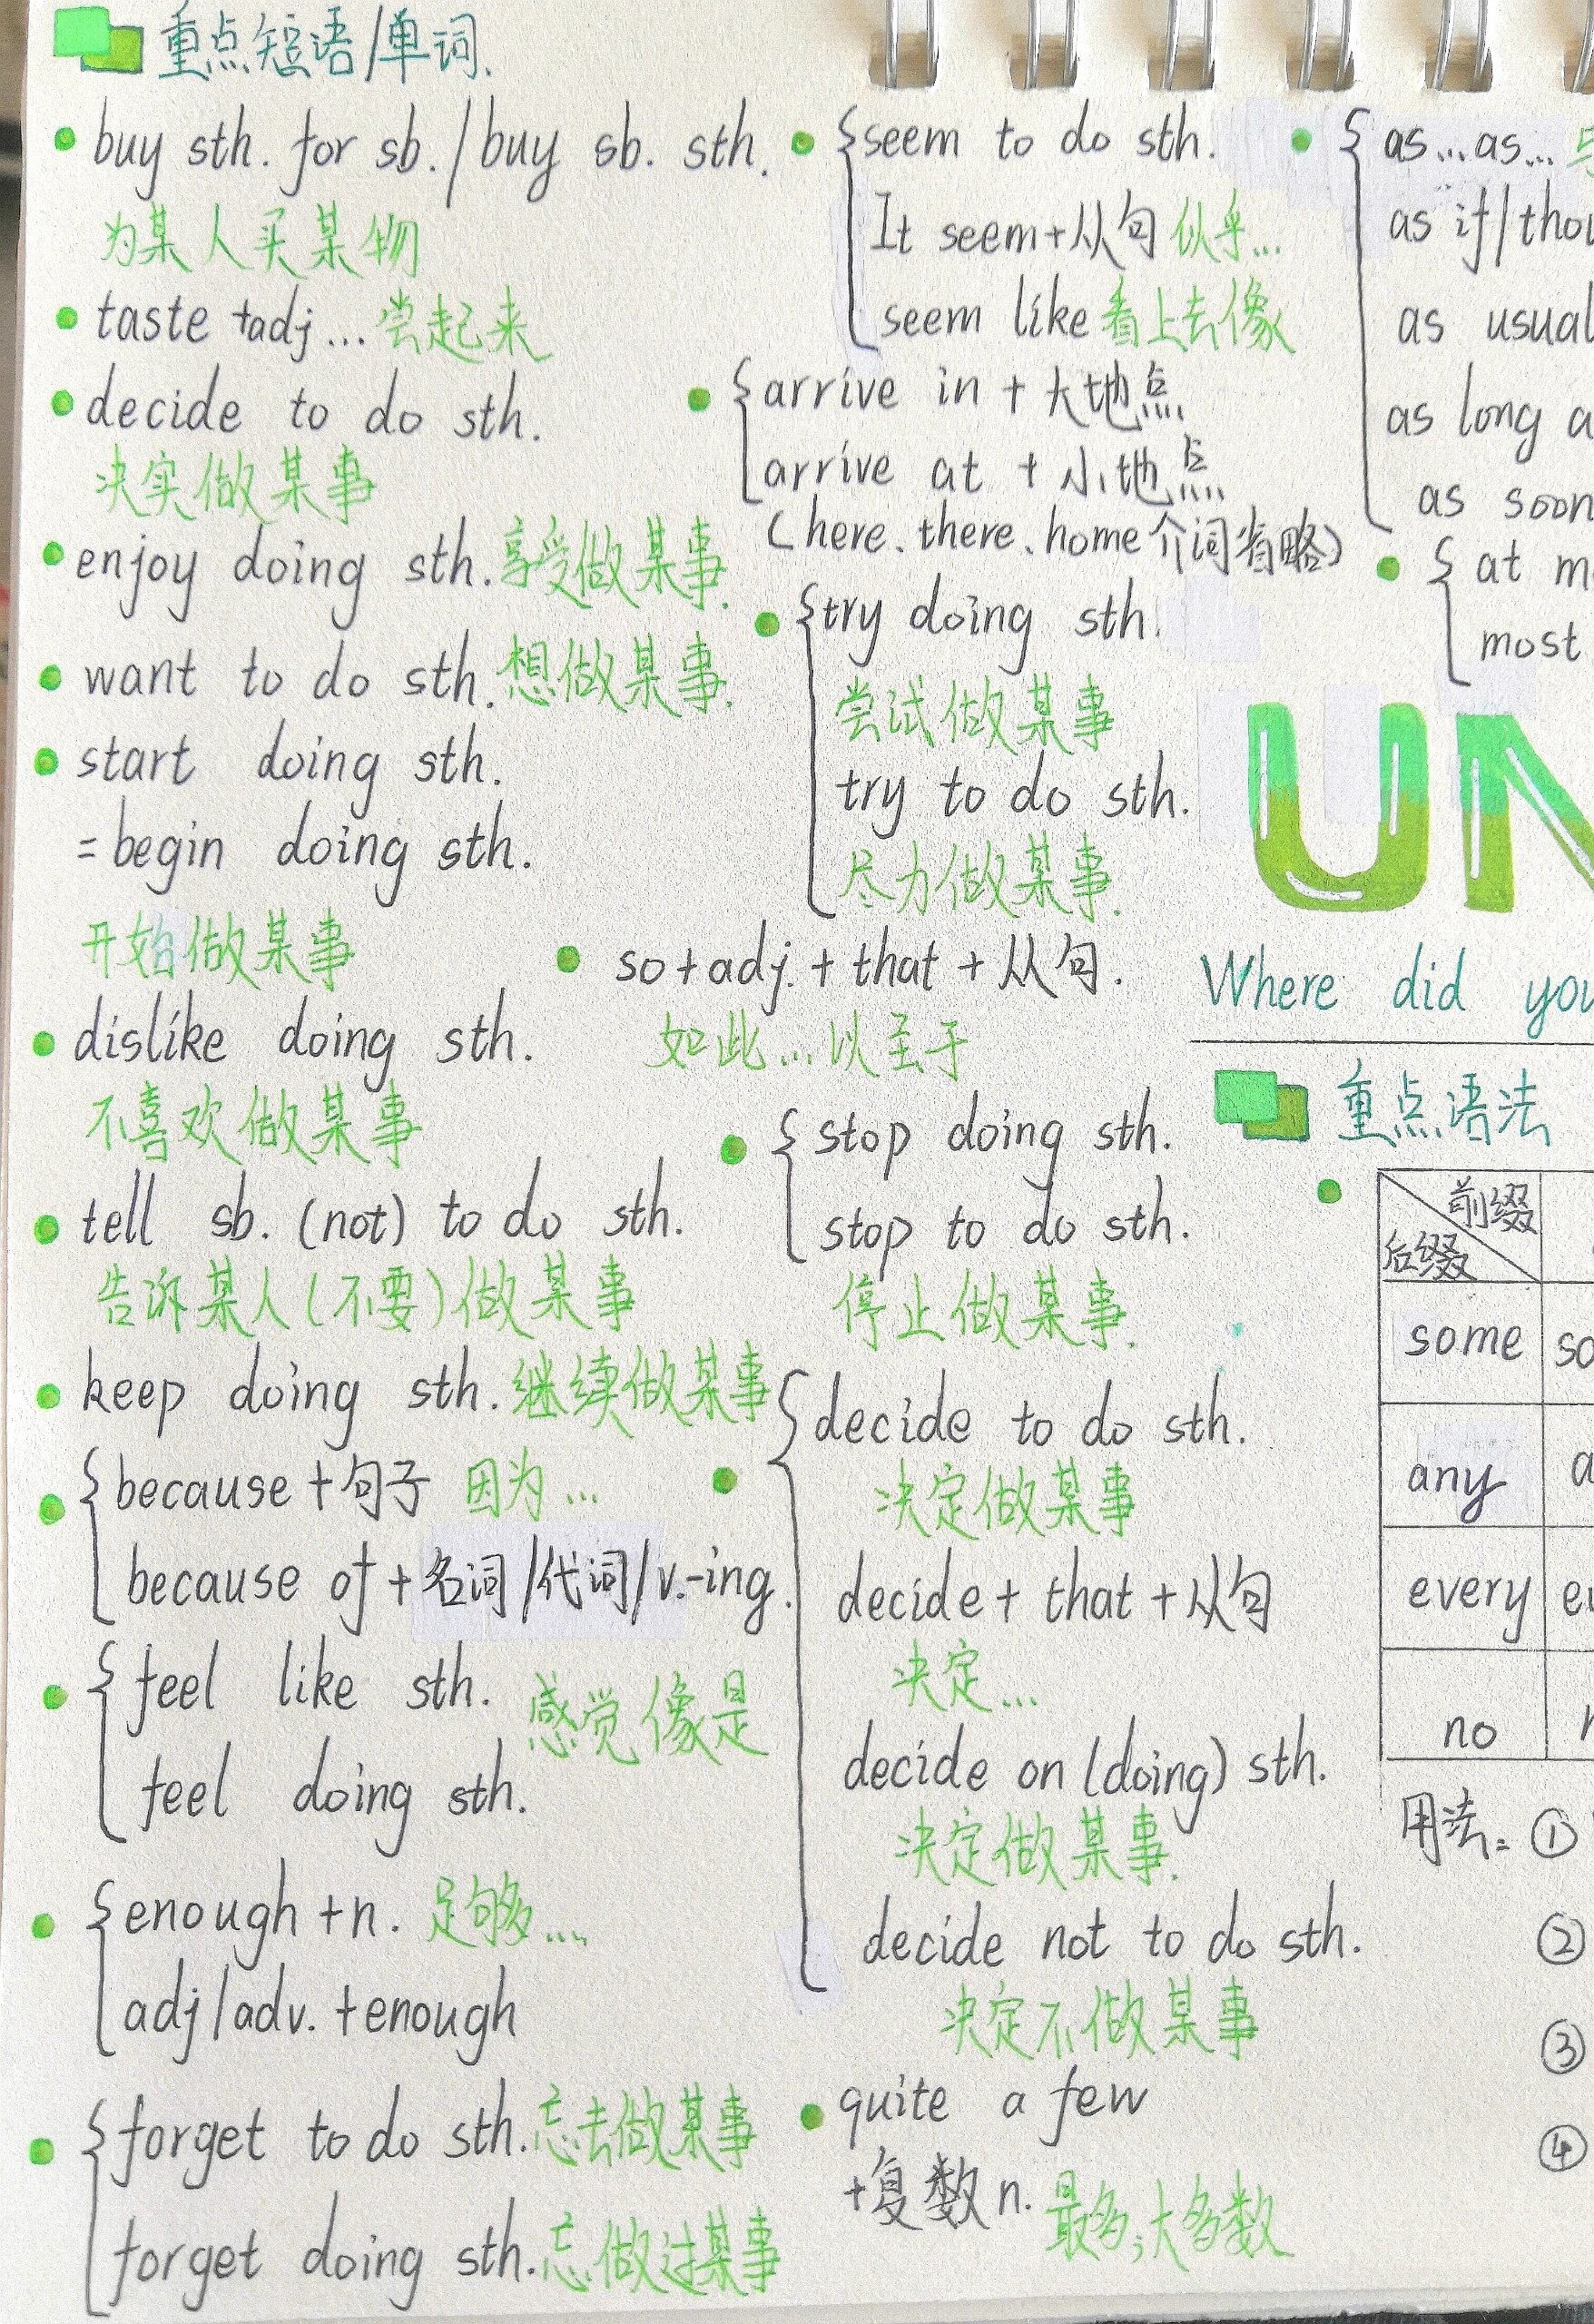 重点短语/单词.
buy sth. for sb. / buy sb. sth.
为某人买某物
taste +adj... 尝起来
decide to do sth.
决实做某事
enjoy doing sth. 享受做某事.
want to do sth. 想做某事.
start doing sth.
=begin doing sth.
开始做某事
dislike doing sth.
不喜欢做某事
tell sb. (not) to do sth.
告诉某人(不要)做某事
keep doing sth. 继续做某事
because +句子 因为...
because of + 名词/代词/v.-ing.
feel like sth. 感觉像是
feel doing sth.
enough +n. 足够...
adj/adv. +enough
forget to do sth. 忘去做某事
forget doing sth. 忘做过某事
seem to do sth.
It seem+从句 似乎...
seem like 看上去像
arrive in + 大地点
arrive at + 小地点
(here、there、home 介词省略)
try doing sth.
尝试做某事
try to do sth.
尽力做某事.
so+adj. + that + 从句.
如此...以至于
stop doing sth.
stop to do sth.
停止做某事.
decide to do sth.
决定做某事
decide + that + 从句
决定...
decide on (doing) sth.
决定做某事.
decide not to do sth.
决定不做某事
quite a few
+复数n. 最多;大多数
as...as...
as if/thou
as usual
as long a
as soon
at m
most
UN
Where did you
重点语法
前缀
后缀
some so
any a
every ev
no n
用法: ①
②
③
④